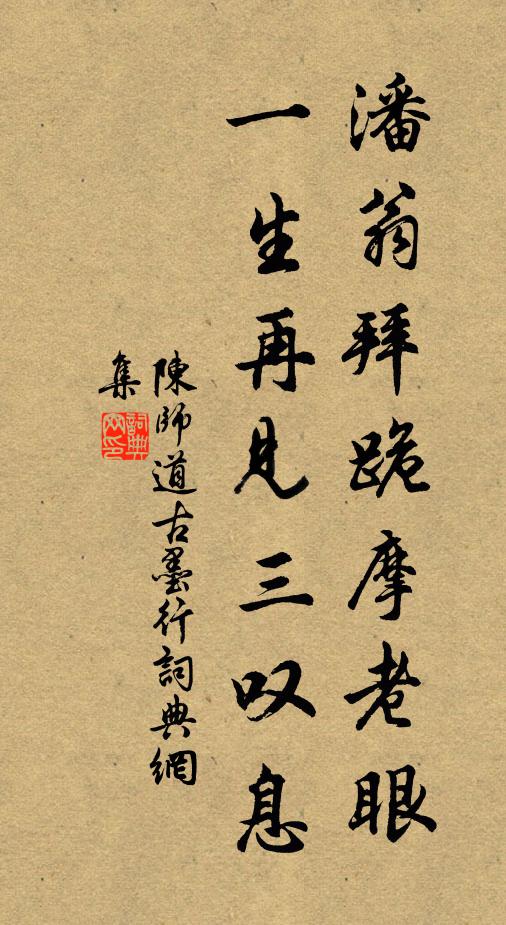 潘翁拜跪摩老眼
一生再見三叹息
陳師道古墨行詞典網
集
詞典网印